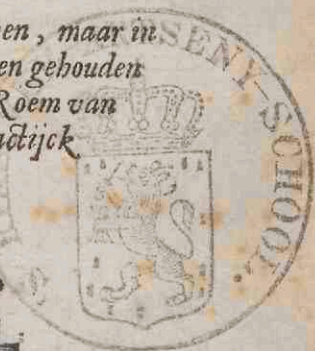 en, maar in
en gehouden
Roem van
actijck
SENY-SCHOOL.